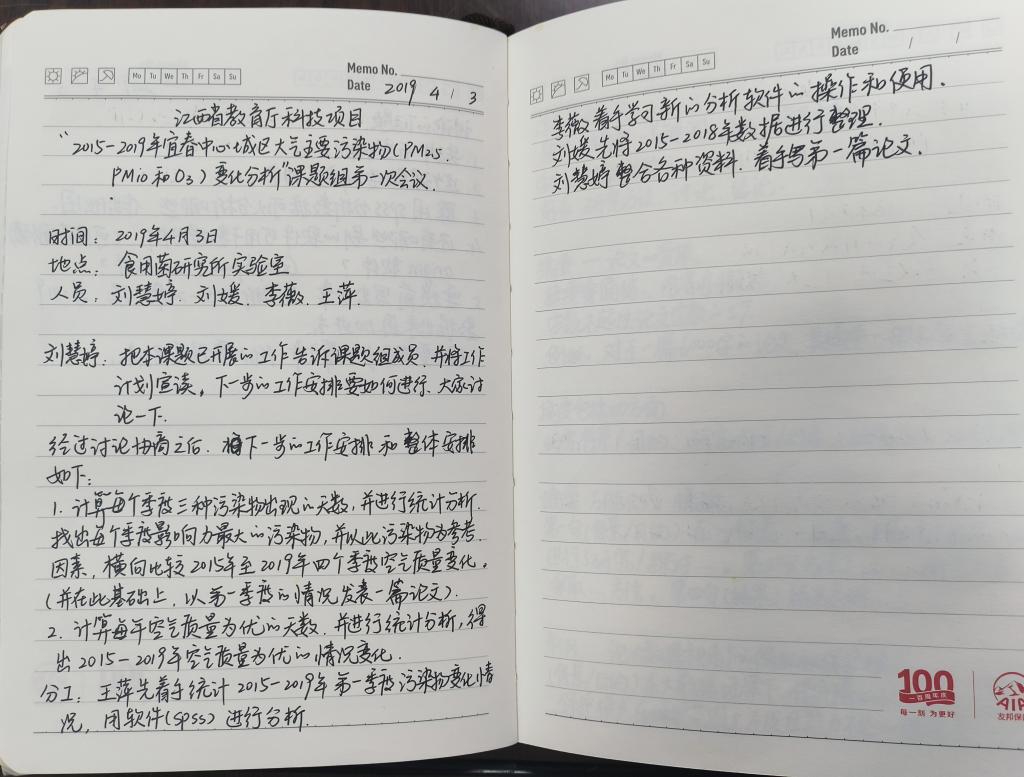 Mo Tu We Th Fr Sa Su
Memo No.
Date 2019 4 / 3
江西省教育厅科技项目
"2015-2019年宜春中心城区大气主要污染物(PM2.5、
PM10和O3)变化分析"课题组第一次会议.
时间: 2019年4月3日
地点: 食用菌研究所实验室
人员: 刘慧婷. 刘媛. 李薇. 王萍.
刘慧婷: 把本课题已开展的工作告诉课题组成员, 并将工作
计划宣读, 下一步的工作安排要如何进行、大家讨
论一下.
经过讨论协商之后. 将下一步的工作安排和整体安排
如下:
1. 计算每个季度三种污染物出现的天数, 并进行统计分析.
找出每个季度影响力最大的污染物, 并以此污染物为参考
因素, 横向比较2015年至2019年四个季度空气质量变化。
(并在此基础上, 以第一季度的情况发表一篇论文).
2. 计算每年空气质量为优的天数. 并进行统计分析, 得
出2015-2019年空气质量为优的情况变化.
分工: 王萍先着手统计2015-2019年第一季度污染物变化情
况, 用软件(SPSS)进行分析.
Memo No.
Date / /
Mo Tu We Th Fr Sa Su
李薇着手学习新的分析软件的操作和使用.
刘媛先将2015-2018年数据进行整理.
刘慧婷整合各种资料. 着手写第一篇论文.
100
一百周年庆
每一刻 为更好
AIA
友邦保